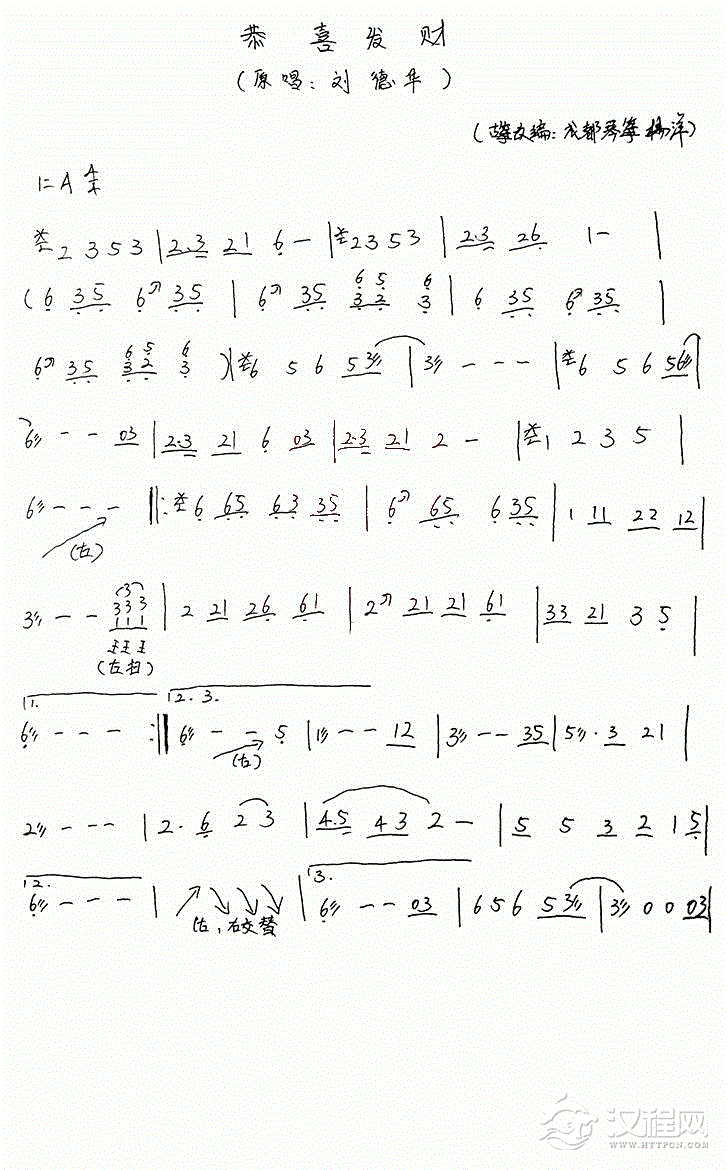 恭喜发财
(原唱:刘德华)
(古筝改编:成都琴筝 杨洋)
1=A 4/4
2 3 5 3 | 2·3 21 6 — | 2 3 5 3 | 2·3 26 1 — |
(6 35 6 35 | 6 35 32 3 | 6 35 6 35 |
6 35 32 3 ) | 6 5 6 53 | 3 — — — | 6 5 6 56 |
6 — — 03 | 2·3 21 6 03 | 2·3 21 2 — | 1 2 3 5 |
6 — — — ‖: 6 65 63 35 | 6 65 6 35 | 1 11 22 12 |
(左)
3 — — 333 | 2 21 26 61 | 2 21 21 61 | 33 21 3 5 |
111
(左扫)
1. 2. 3.
6 — — — :‖ 6 — — 5 | 1 — — 12 | 3 — — 35 | 5 · 3 21 |
(左)
2 — — — | 2· 6 2 3 | 4·5 43 2 — | 5 5 3 2 1 5 |
2. 3.
6 — — — | 6 — — 03 | 6 5 6 53 | 3 0 0 03 |
(左,右交替
汉程网
HTTPCN.COM